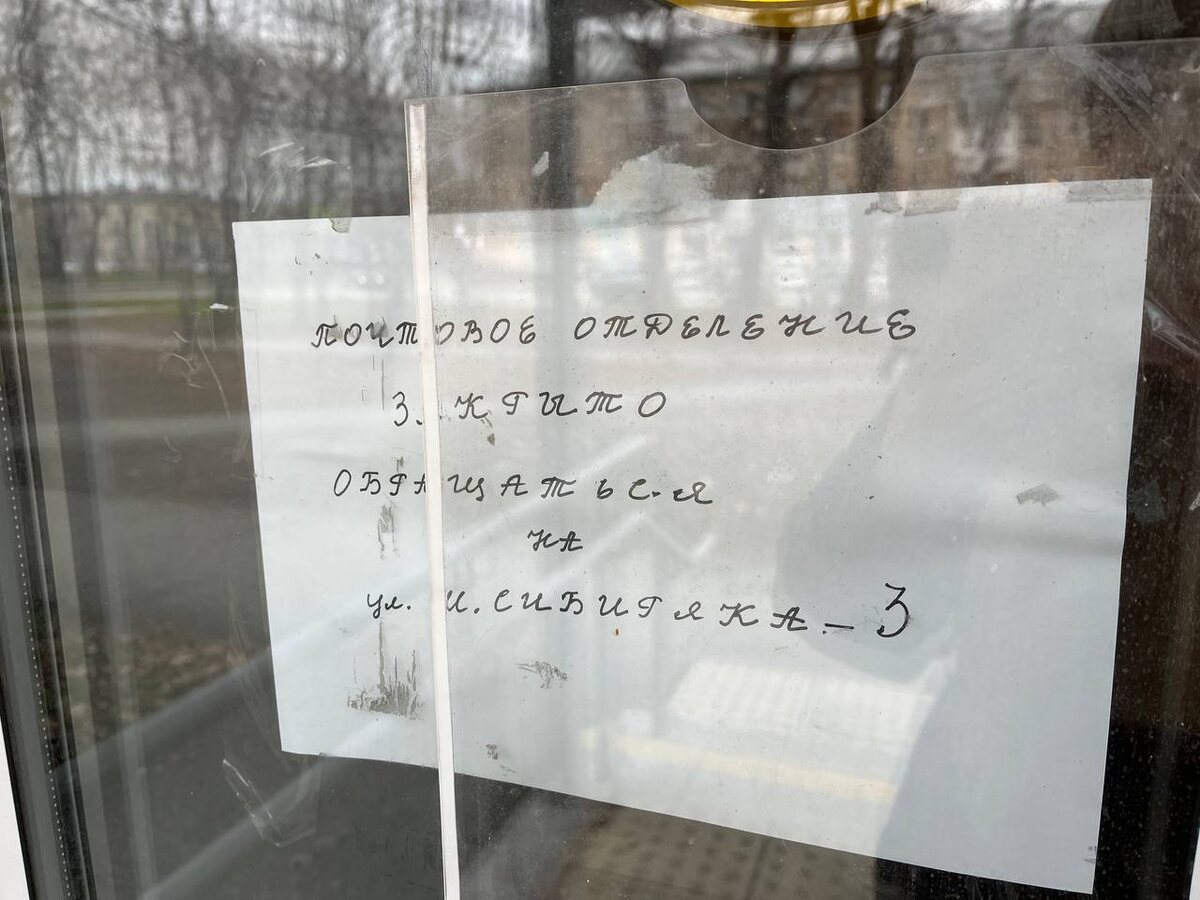 ПОЧТОВОЕ ОТДЕЛЕНИЕ
ЗАКРЫТО
ОБРАЩАТЬСЯ
НА
ул. М.СИБИРЯКА - 3